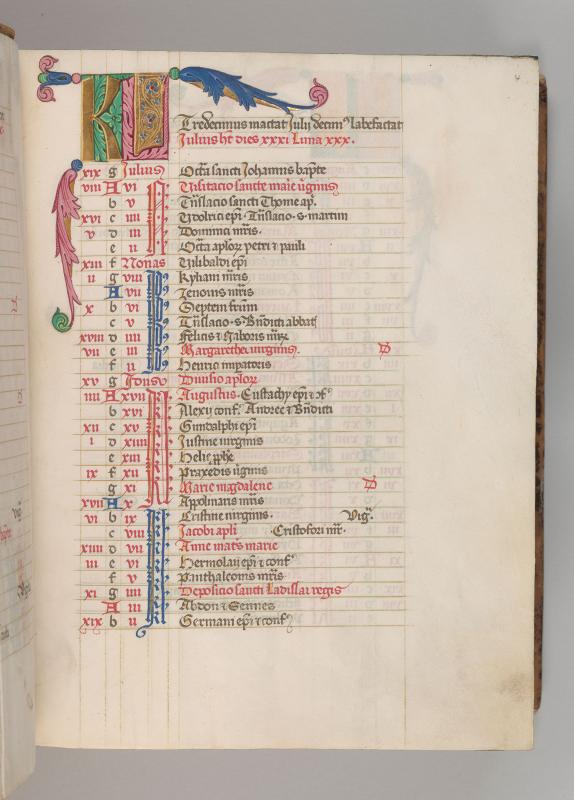 KL
Tredecimus mactat Julij decim9 labefactat
Julius ht dies xxxi Luna xxx.
xix g Julius Octa sancti Johannis bapte
viii A vi N Visitacio sancte marie virginis
b v Translacio sancti Thome ap.
xvi c iiii Udolrici epi Translacio s martini
v d iii Dominici mris.
e ii Octa aplor petri & pauli
xiii f Nonas Wilibaldi epi
ii g viii Kyliani mris
A vii Zenonis mris
x b vi Septem frum
c v Translacio s Bndicti abbatis
xviii d iiii Felicis & Naboris mrm
vii e iii Margarethe virginis. D
f ii Henrici impatoris
xv g Idus Divisio aplor
iiii A xvii K Augustus Eustachy epi & cf
b xvi Alexii conf. Andree & Bndicti
xii c xv Gundalphi epi
i d xiiii Justine virginis
e xiii Helie pphe
ix f xii Praxedis virginis
g xi Marie magdalene D
xvii A x Apolinaris mris
vi b ix K Cristine virginis. Vig.
c viii Jacobi apli Cristofori mr.
xiiii d vii Anne matris marie
iii e vi Hermolai epi & conf
f v Panthaleonis mris
xi g iiii Deposicio sancti Ladislai regis
A iii Abdon & Sennes
xix b ii Germani epi & conf